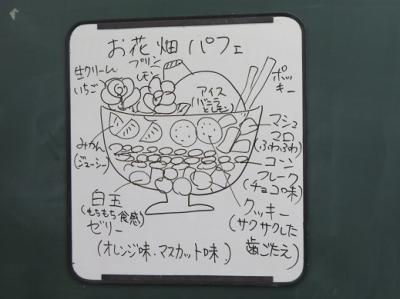 お花畑パフェ
生クリーム
いちご
プリン
レモン
アイス
(バニラ
とレモン)
ポッ
キー
みかん
(ジューシー)
マシュ
マロ
(ふわふわ)
コーン
フレーク
(チョコ味)
白玉
(もちもち食感)
ゼリー
(オレンジ味、マスカット味)
クッキー
(サクサクした
歯ごたえ)